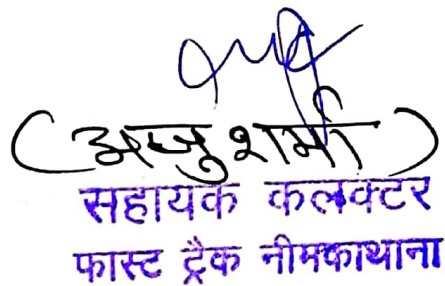 (अजु शर्मा)
सहायक कलक्टर
फास्ट ट्रैक नीमकाथाना